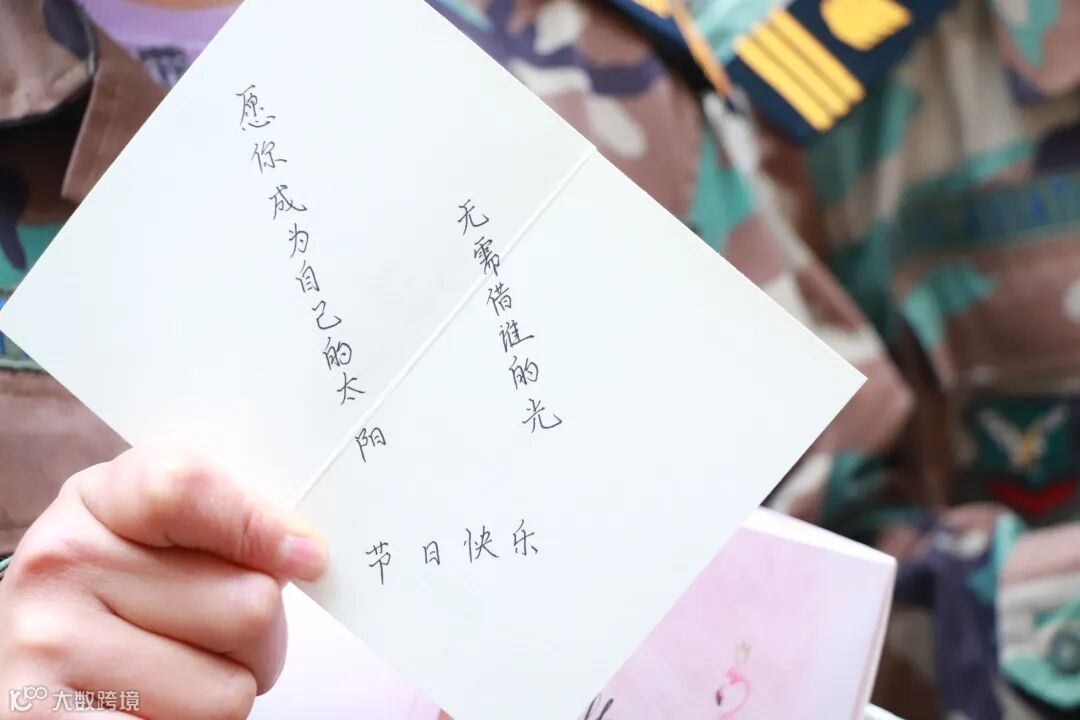 愿你成为自己的太阳
无需借谁的光
节日快乐
大数跨境